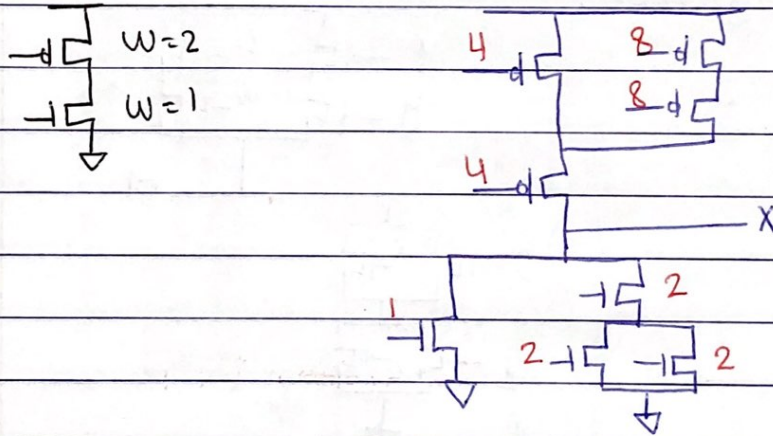 W=2
W=1
4
8
8
4
X
1
2
2
2